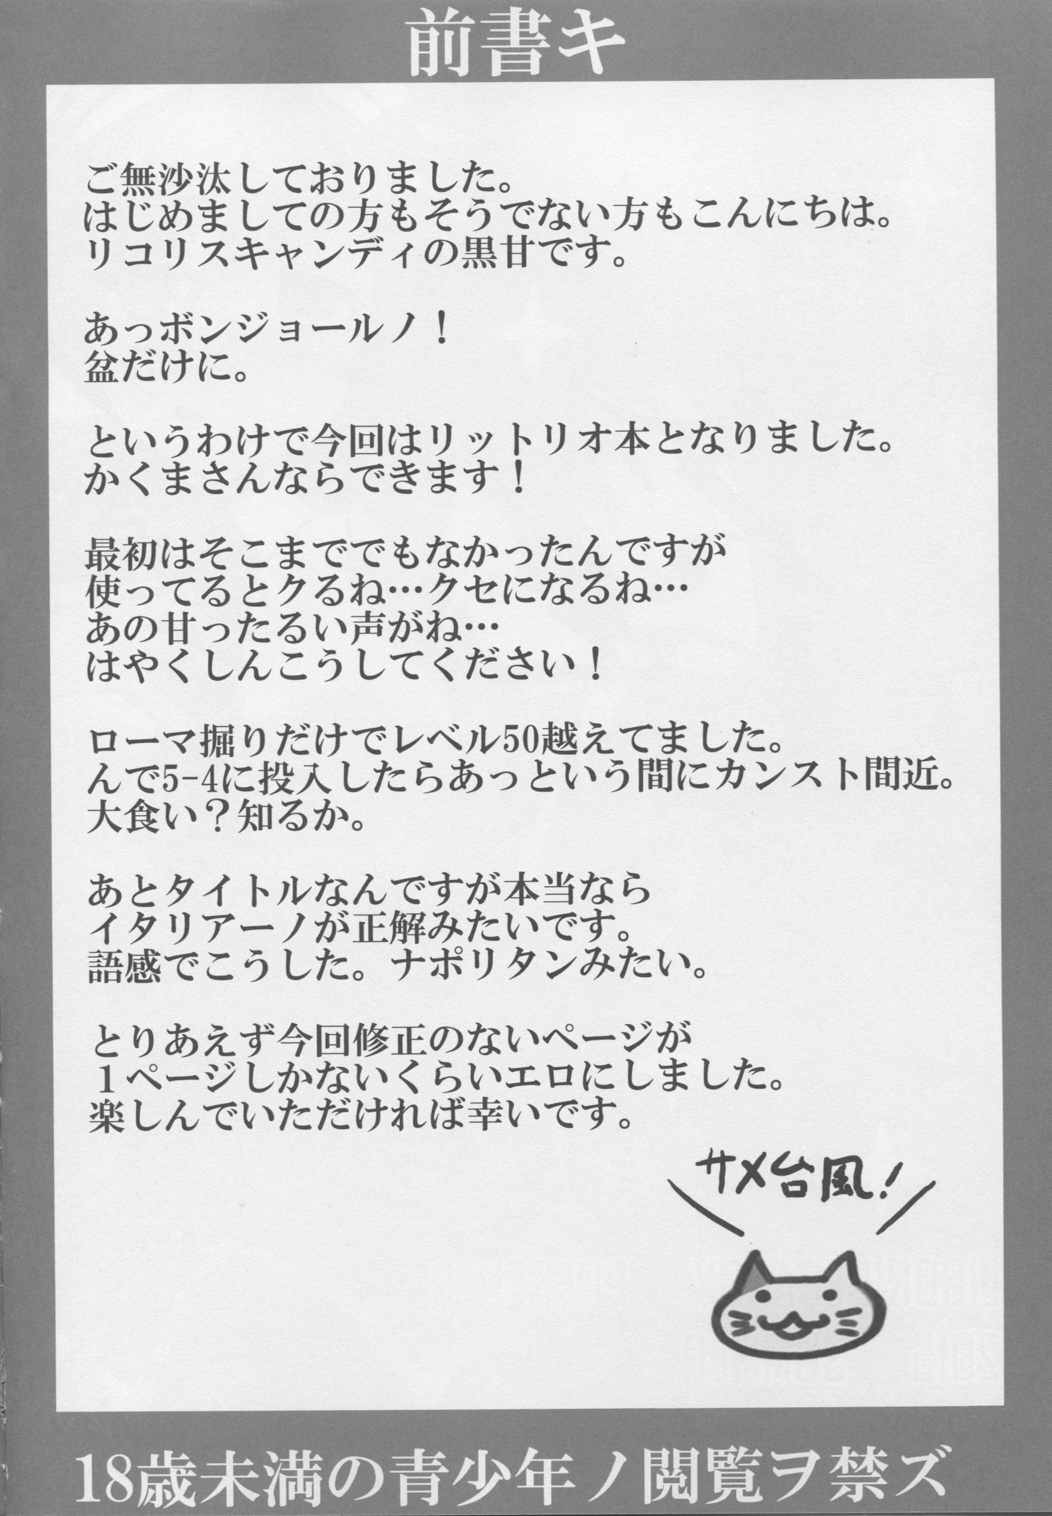 前書キ
ご無沙汰しておりました。
はじめましての方もそうでない方もこんにちは。
リコリスキャンディの黒甘です。
あっボンジョールノ！
盆だけに。
というわけで今回はリットリオ本となりました。
かくまさんならできます！
最初はそこまででもなかったんですが
使ってるとクるね…クセになるね…
あの甘ったるい声がね…
はやくしんこうしてください！
ローマ掘りだけでレベル50越えてました。
んで5-4に投入したらあっという間にカンスト間近。
大食い？知るか。
あとタイトルなんですが本当なら
イタリアーノが正解みたいです。
語感でこうした。ナポリタンみたい。
とりあえず今回修正のないページが
１ページしかないくらいエロにしました。
楽しんでいただければ幸いです。
サメ台風！
18歳未満の青少年ノ閲覧ヲ禁ズ